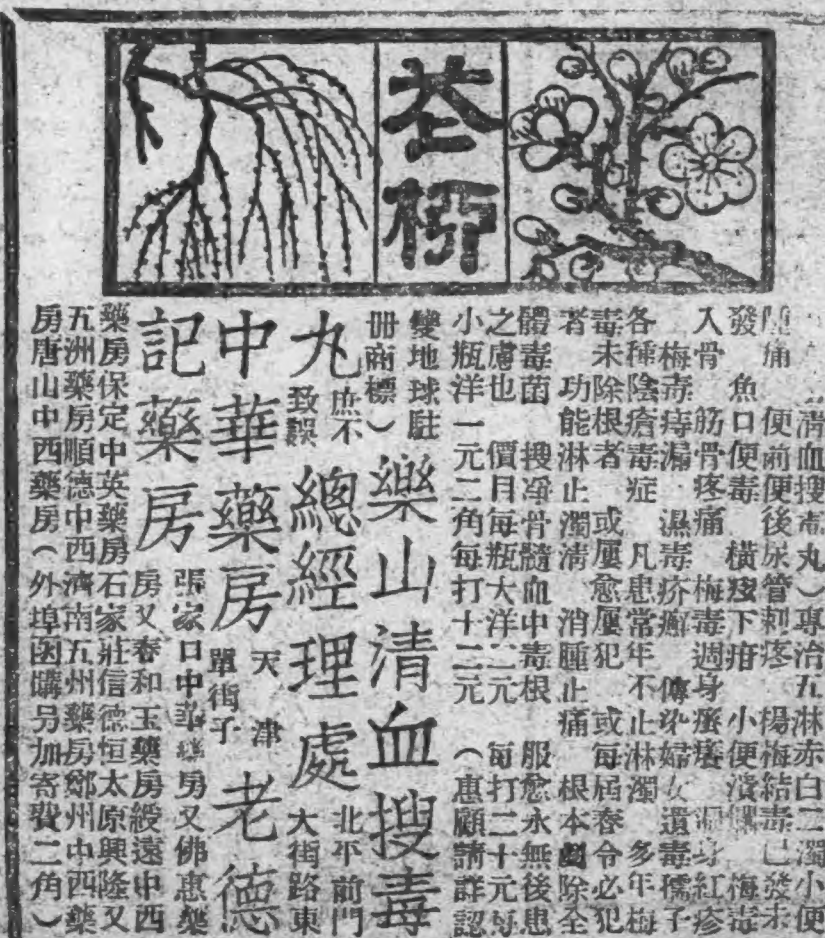 花柳
清血搜毒丸）專治五淋赤白二濁小便
痛　便前便後尿管刺疼　楊梅結毒已發未
發　魚口便毒　橫痃下疳　小便潰爛　梅毒
入骨　筋骨疼痛　梅毒週身癢　身紅疹
梅毒痔漏　濕毒疥癬　傳染婦女遺毒孺子
各種陰瘡毒症　凡患常年不止淋濁　多年梅
毒未除根者　或屢愈屢犯　或每屆春令必犯
者　功能淋止濁清　消腫止痛　根本剷除全
體毒菌　搜淨骨髓血中毒根　服愈永無後患
之慮也　價目每瓶大洋二元　每打二十元每
小瓶洋一元二角每打十二元　（惠顧請詳認
雙地球駐
册商標）
樂山清血搜毒
丸
庶不
致誤
總經理處
北平前門
大街路東
中華藥房
天津
單街子
老德
記藥房
張家口中華藥房又佛惠藥
房又春和玉藥房綏遠中西
藥房保定中英藥房石家莊信德恒太原興隆又
五洲藥房順德中西濟南五州藥房鄭州中西藥
房唐山中西藥房（外埠函購另加寄費二角）